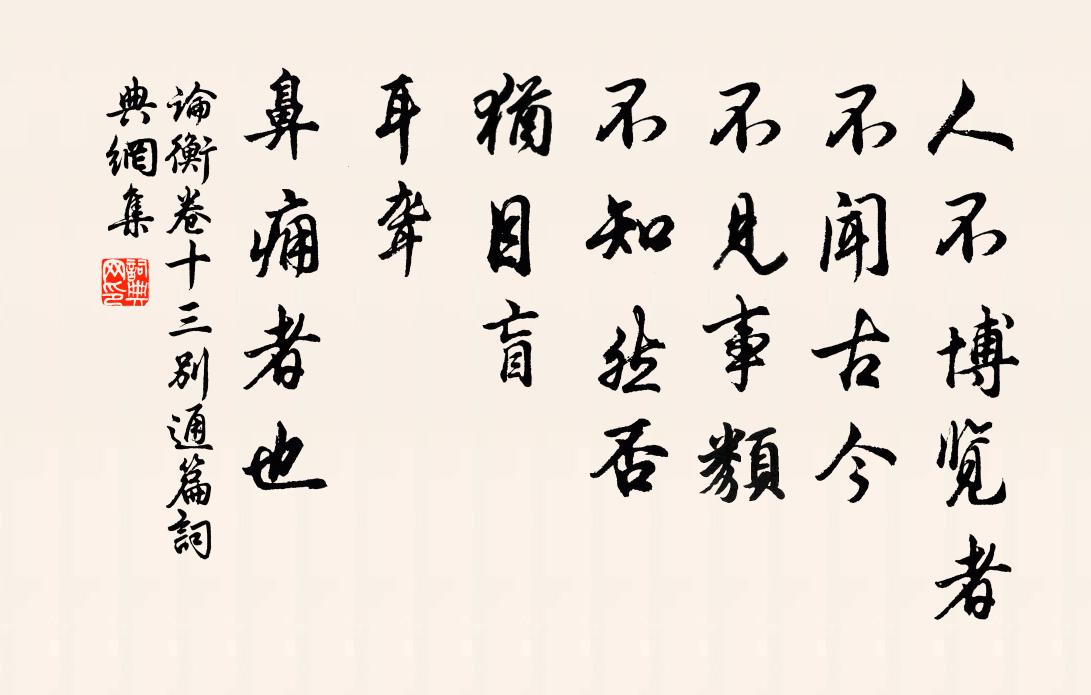 人不博覽者
不聞古今
不見事類
不知然否
猶目盲
耳聾
鼻痈者也
論衡卷十三別通篇詞
典網集
詞典
网印